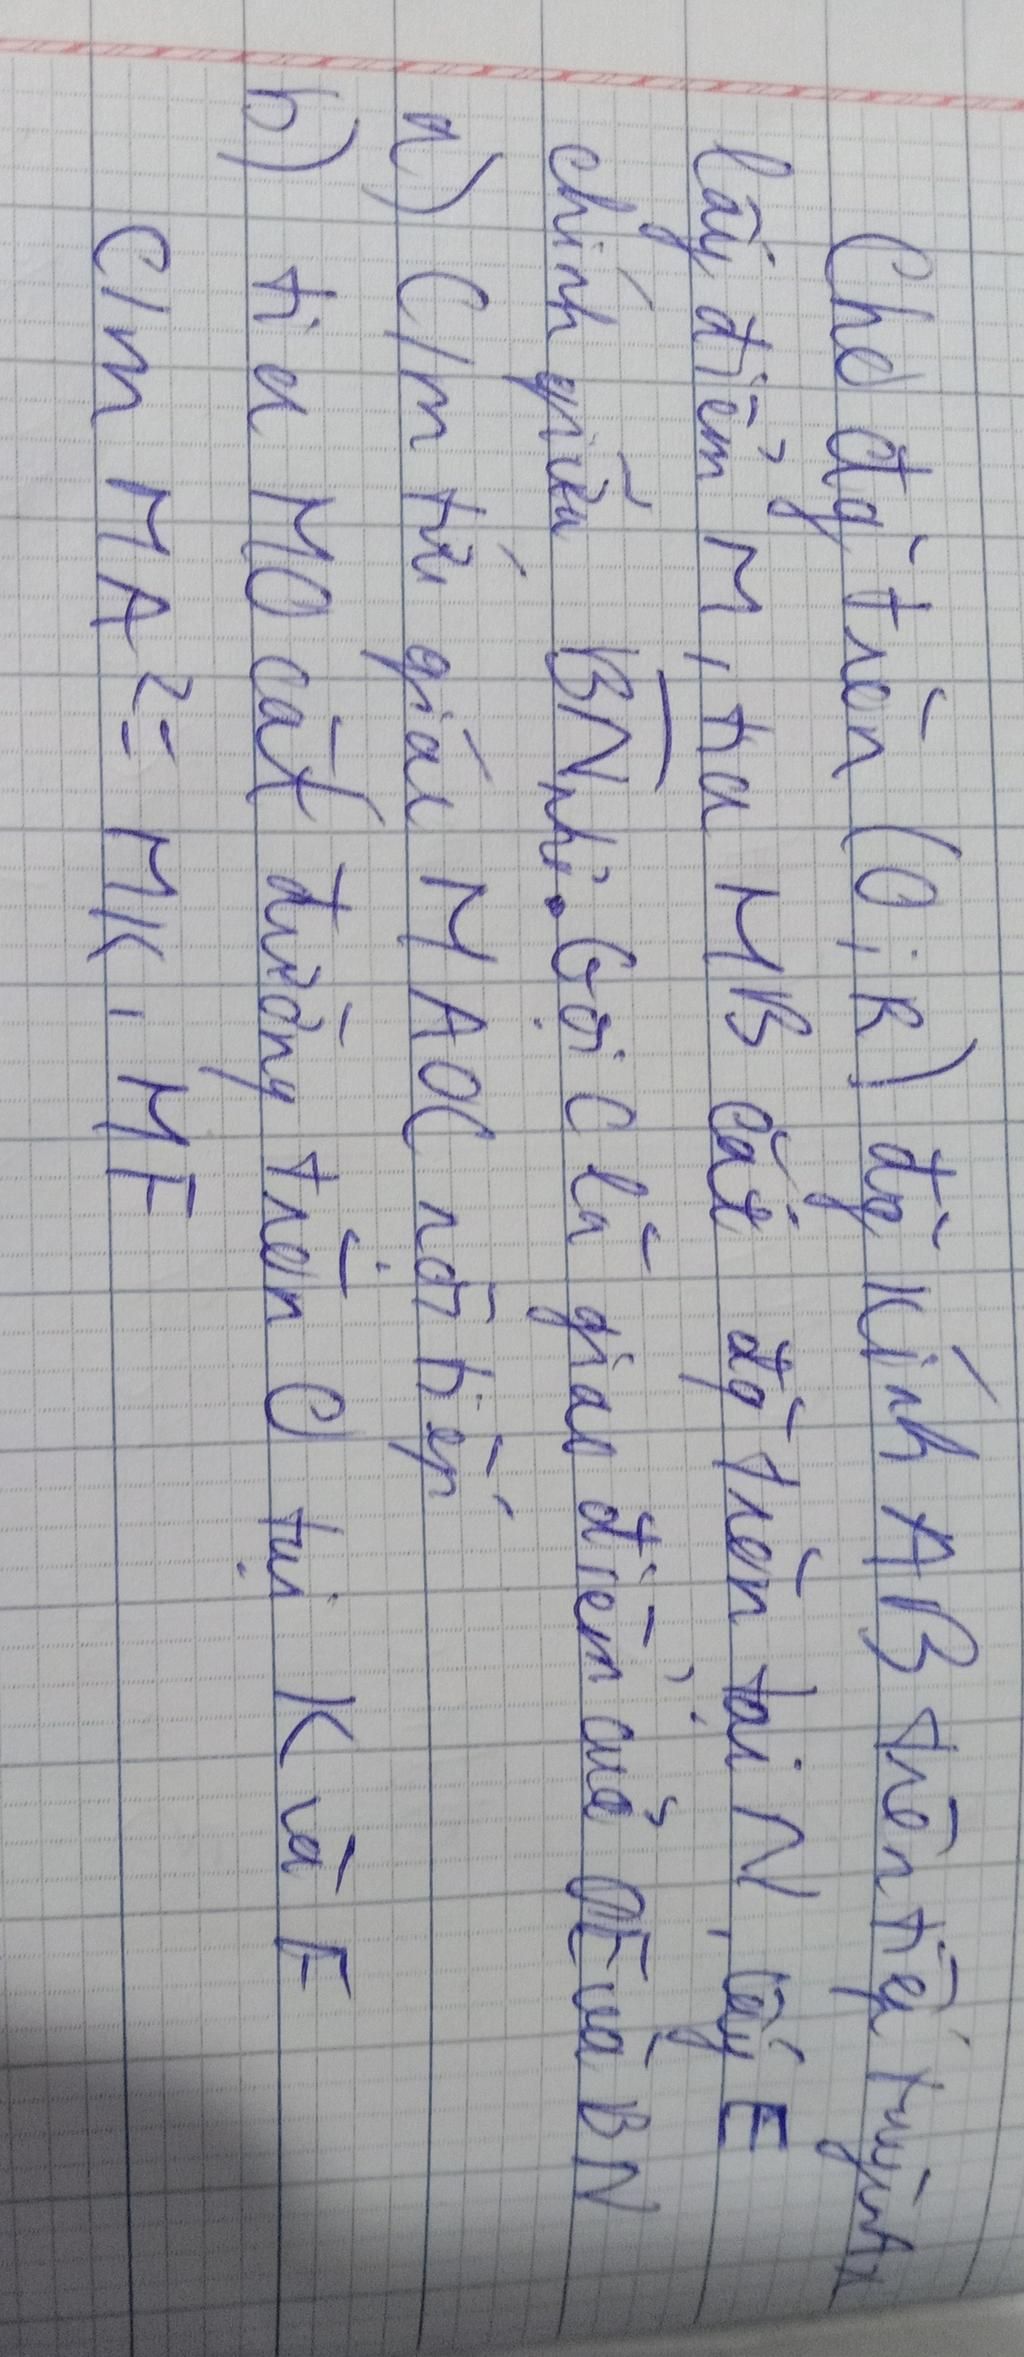 Cho đg tròn (O; R) đg kính AB trên tiếp tuyến Ax
lấy điểm M, tia MB cắt đg tròn tại N, lấy E
chính giữa BN nhỏ. Gọi C là giao điểm của OE và BN
a) C/m tứ giác MAOC nội tiếp
b) tia MO cắt đường tròn O tại K và F
C/m MA² = MK. MF